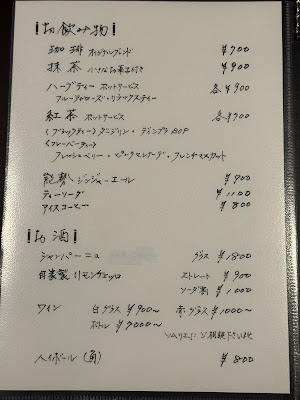 お飲み物
珈琲 オリジナルブレンド ¥700
抹茶 小さなお菓子付き ¥900
ハーブティー ポットサービス 各¥900
フルーツ&ローズ・リラックスティー
紅茶 ポットサービス 各¥900
〈ブラックティー〉ダージリン・ディンブラBOP
〈フレーバーティー〉
フレッシュベリー・ピーチ・フレンチマスカット
能勢ジンジャーエール ¥900
ティーソーダ ¥1100
アイスコーヒー ¥800
お酒
シャンパーニュ グラス ¥1800
自家製リモンチェッロ ストレート ¥900
ソーダ割 ¥1000
ワイン 白グラス ¥900〜 赤グラス ¥1000〜
ボトル ¥9000〜
ソムリエにご相談下さいませ
ハイボール(角) ¥800